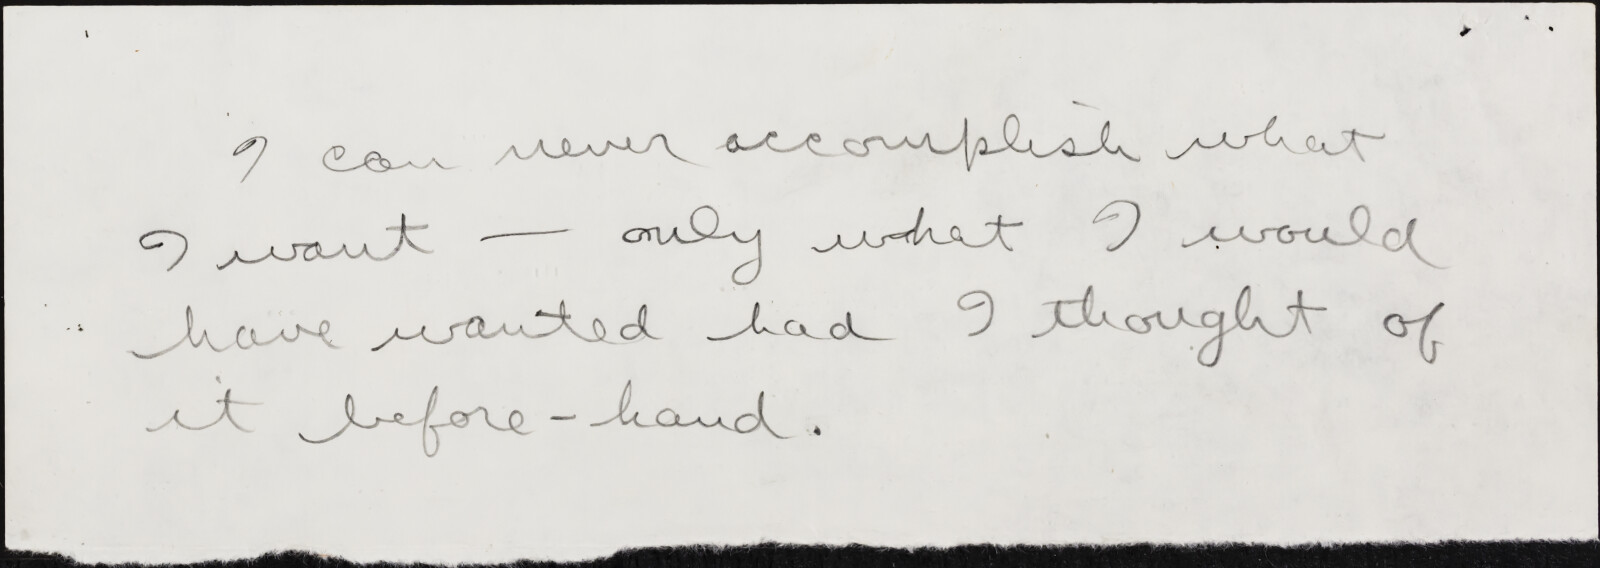 I can never accomplish what
I want — only what I would
have wanted had I thought of
it before-hand.